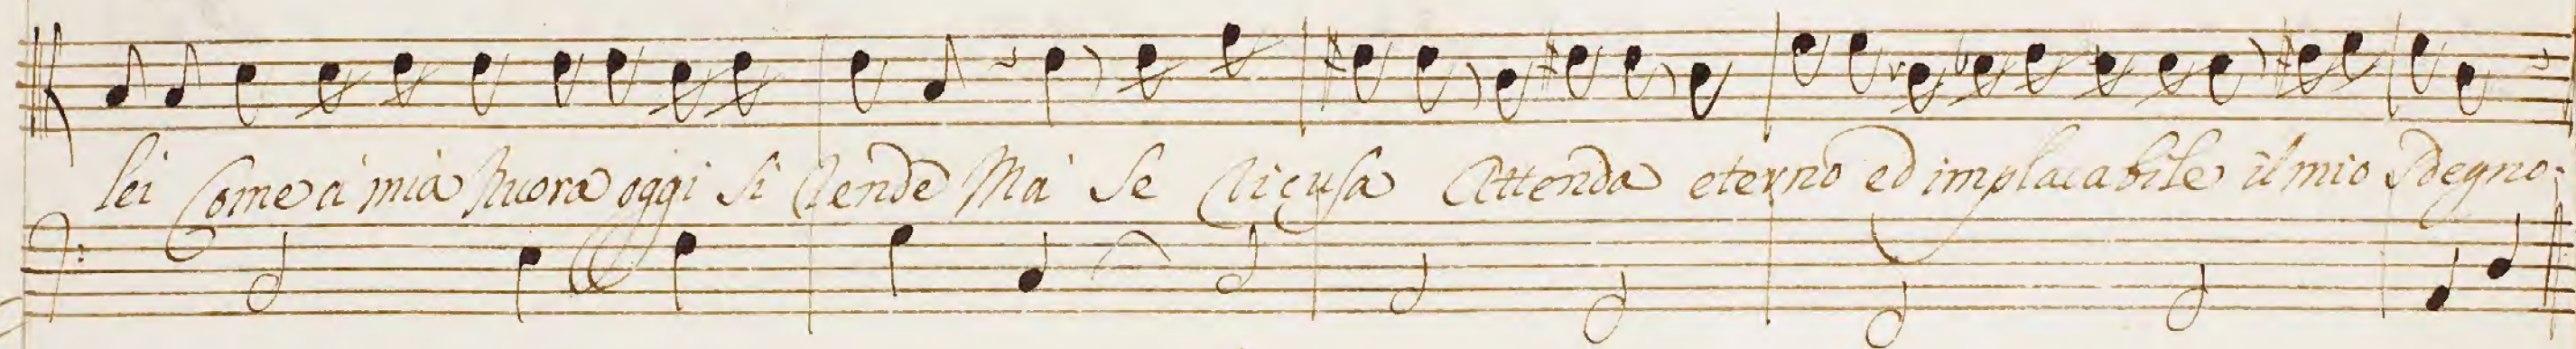 lei Come a mia Nuora oggi si Rende Ma se Ricusa Attenda eterno ed implacabile il mio sdegno.